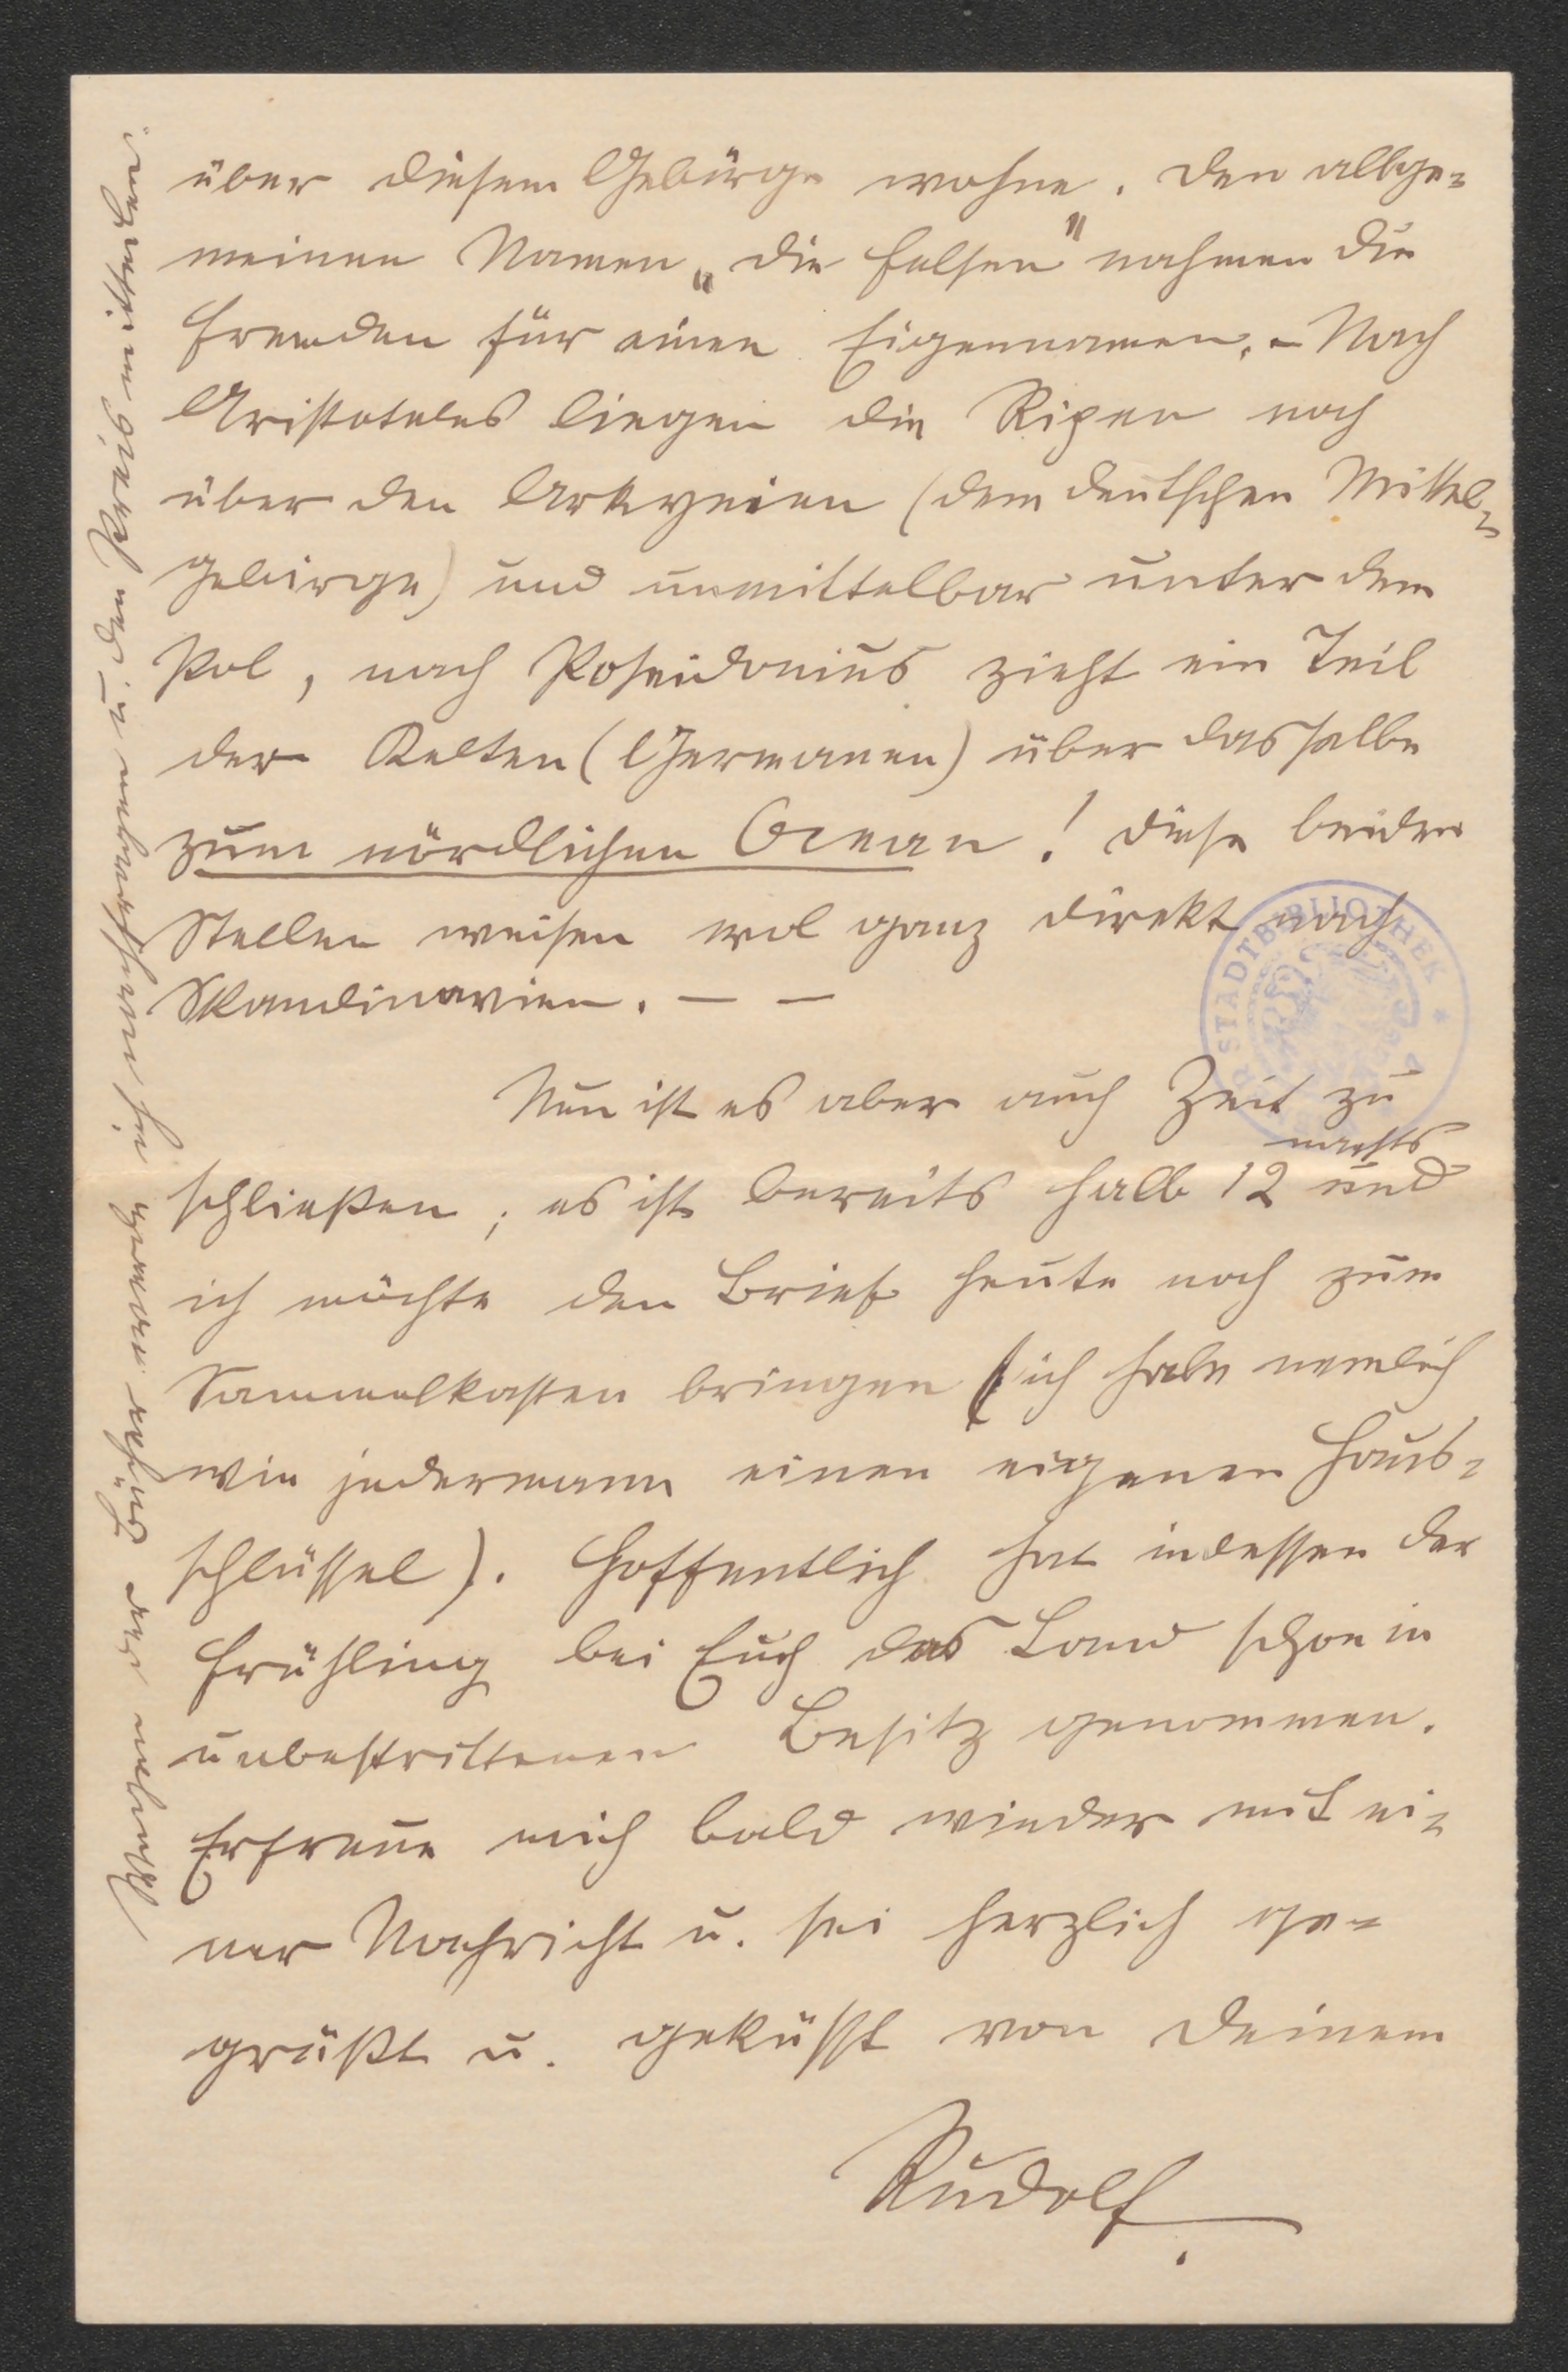 über diesem Gebürge wohne. Den allge-
meinen Namen „die Felsen" nahmen die
Fremden für einen Eigennamen. – Nach
Aristoteles liegen die Ripen noch
über den Arkynien (dem deutschen Mittel-
gebirge) und unmittelbar unter dem
Pol, nach Poseidonius zieht ein Teil
der Kelten (Germanen) über dasselbe
zum nördlichen Ocean! Diese beiden
Stellen weisen wol ganz direkt nach
Skandinavien. — —
Nun ist es aber auch Zeit zu
schließen; es ist bereits halb 12 nachts und
ich möchte den Brief heute noch zum
Sammelkasten bringen (ich habe nemlich
wie jedermann einen eigenen Haus-
schlüssel). Hoffentlich hat indessen der
Frühling bei Euch das Land schon in
unbestrittenen Besitz genommen.
Erfreue mich bald wieder mit ei-
ner Nachricht u. sei herzlich ge-
grüßt u. geküsst von Deinem
Rudolf.
STADTBIBLIOTHEK